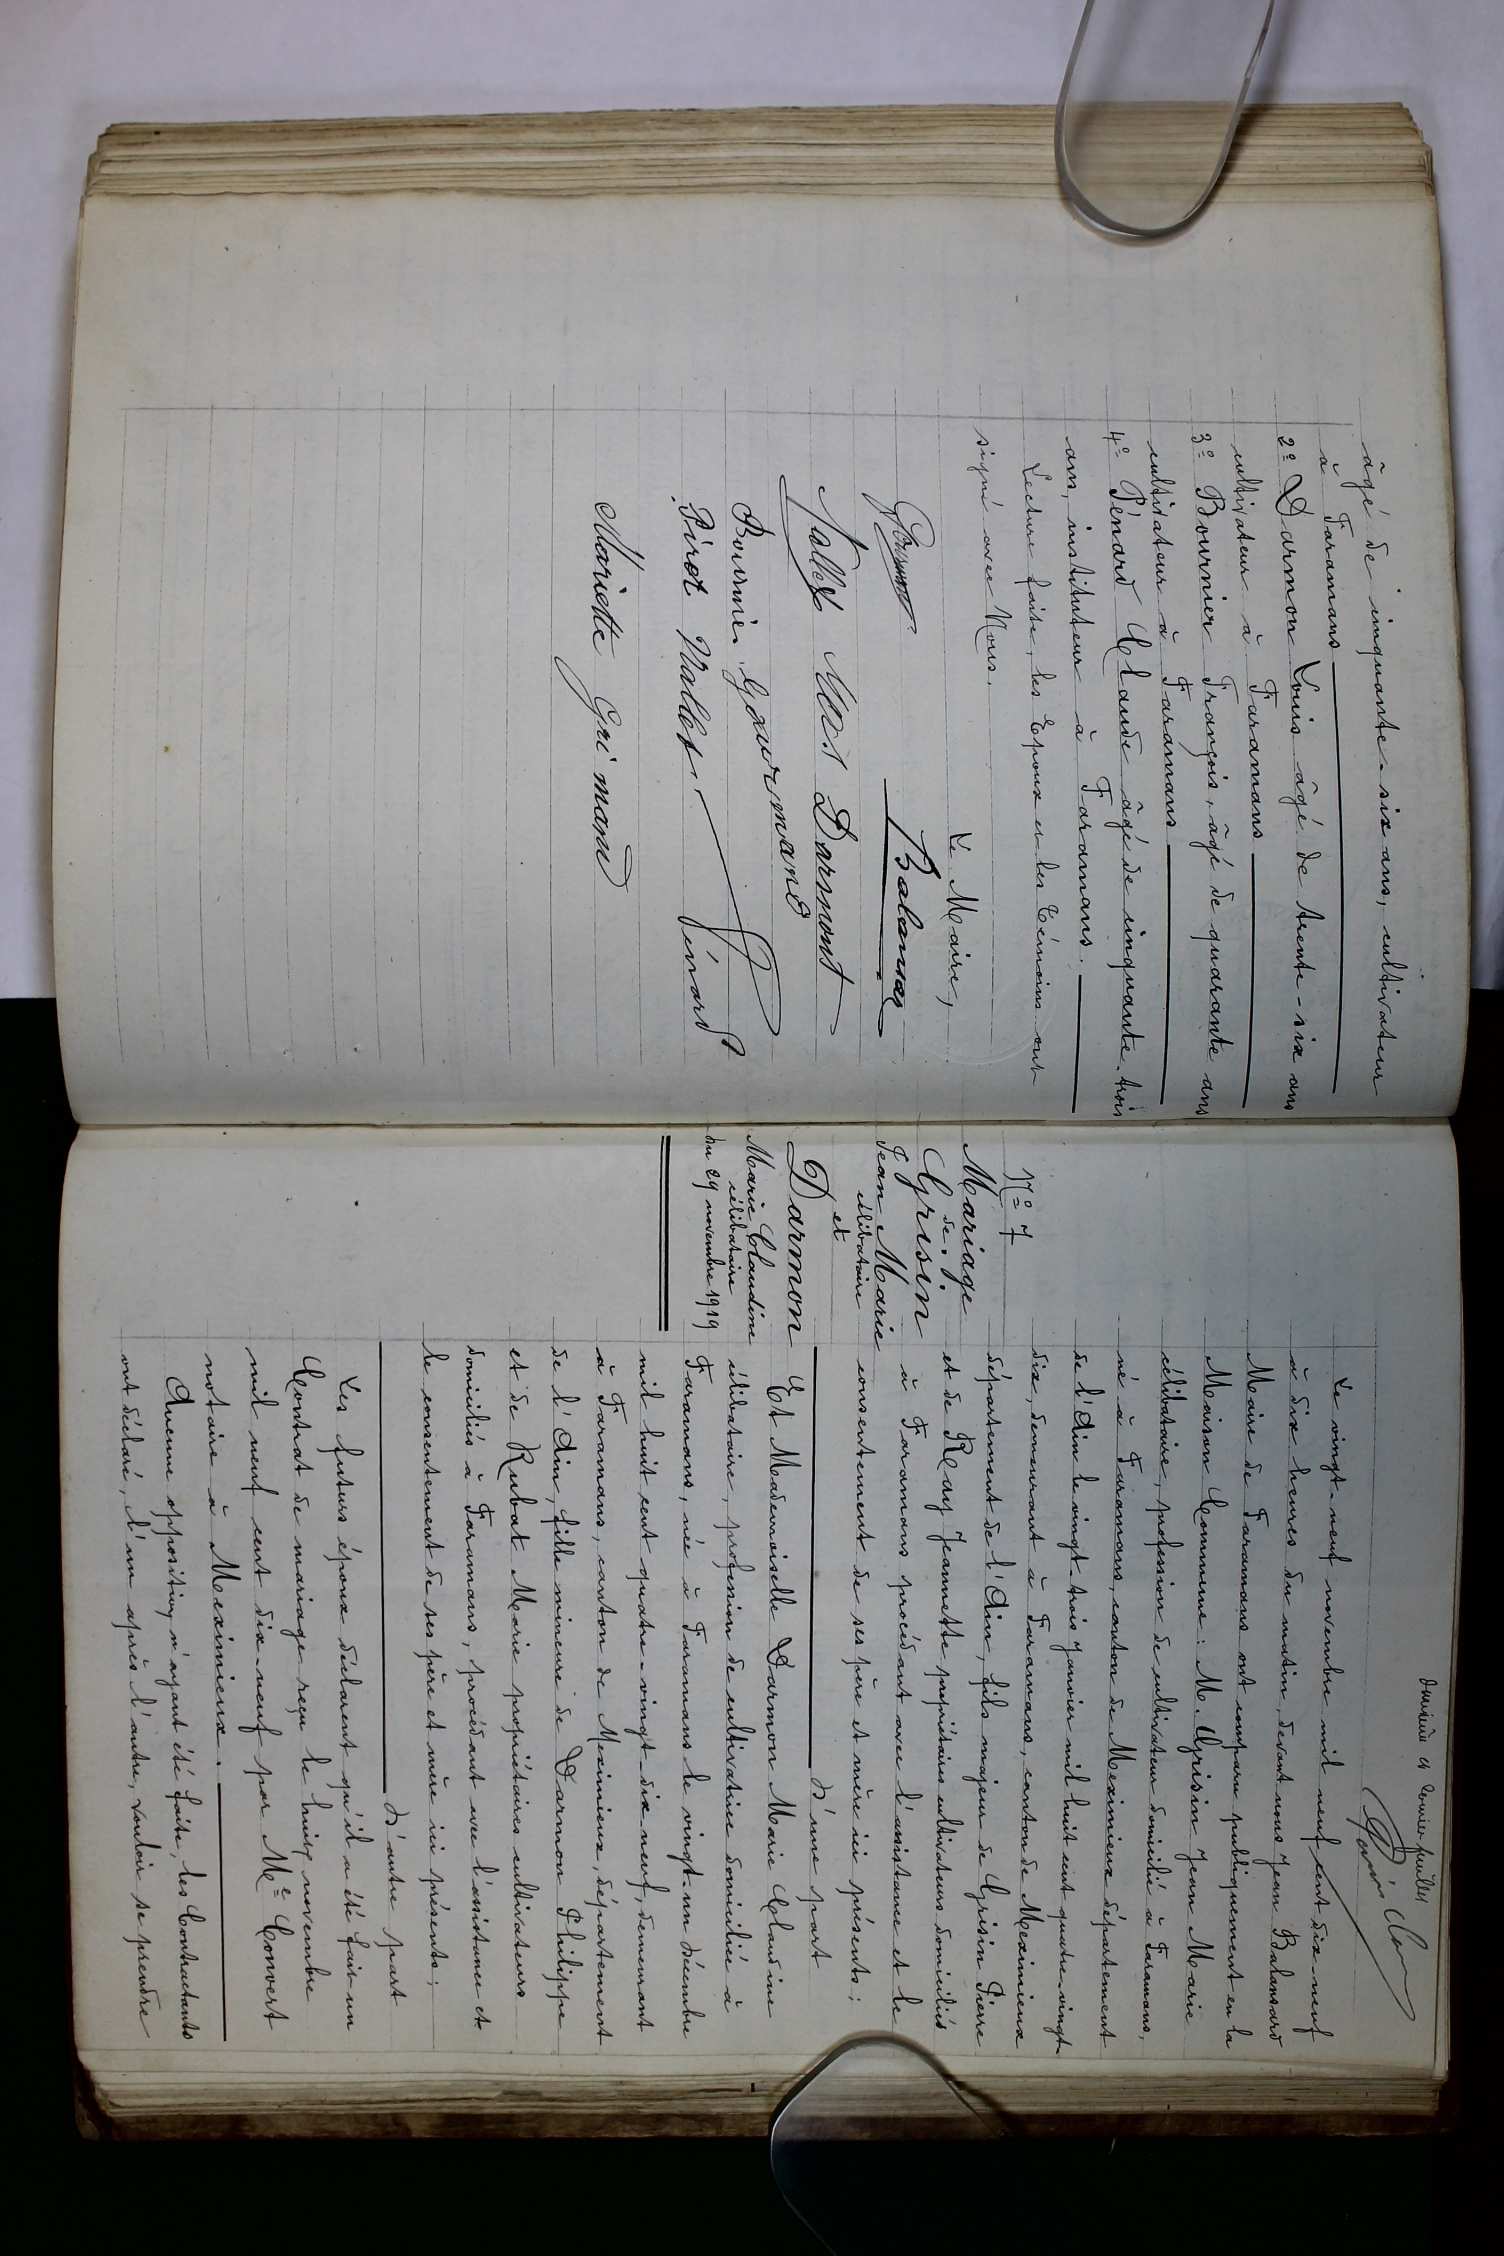 âgé de cinquante-six ans, cultivateur
à Faramans
2º Darmon Louis âgé de trente-six ans
cultivateur à Faramans
3º Bournier François, âgé de quarante ans
cultivateur à Faramans
4º Pénard Claude âgé de cinquante-trois
ans, instituteur à Faramans.
Lecture faite, les Epoux et les Témoins ont
signé avec Nous.
Le Maire,
Vallet Darmont
Bournier Gourmand
Pirot Vallet. Pénard
Mariette Grimand
feuillet
Nº 7
Mariage
de :
Grisin
Jean Marie
célibataire
et
Darmon
Marie Claudine
célibataire
du 29 novembre 1919
Le vingt-neuf novembre mil neuf cent dix-neuf
à dix heures du matin, devant nous Jean Balansard
Maire de Faramans ont comparu publiquement en la
Maison Commune : M. Grisin Jean Marie
célibataire, profession de cultivateur domicilié à Faramans,
né à Faramans, canton de Meximieux département
de l'Ain le vingt-trois janvier mil huit cent quatre-vingt-
dix, demeurant à Faramans, canton de Meximieux
département de l'Ain, fils majeur de Grisin Pierre
et de Reay Jeannette propriétaires cultivateurs domiciliés
à Faramans procédant avec l'assistance et le
consentement de ses père et mère ici présents ;
d'une part
Et Mademoiselle Darmon Marie Claudine
célibataire, profession de cultivatrice domiciliée à
Faramans, née à Faramans le vingt-un décembre
mil huit cent quatre-vingt-dix-neuf, demeurant
à Faramans, canton de Meximieux, département
de l'Ain, fille mineure de Darmon Philippe
et de Rubat Marie propriétaires cultivateurs
domiciliés à Faramans, procédant avec l'assistance et
le consentement de ses père et mère ici présents ;
d'autre part
Les futurs époux déclarent qu'il a été fait un
Contrat de mariage reçu le huit novembre
mil neuf cent dix-neuf par Me Convert
notaire à Meximieux.
Aucune opposition n'ayant été faite, les Contractants
ont déclaré, l'un après l'autre, vouloir se prendre